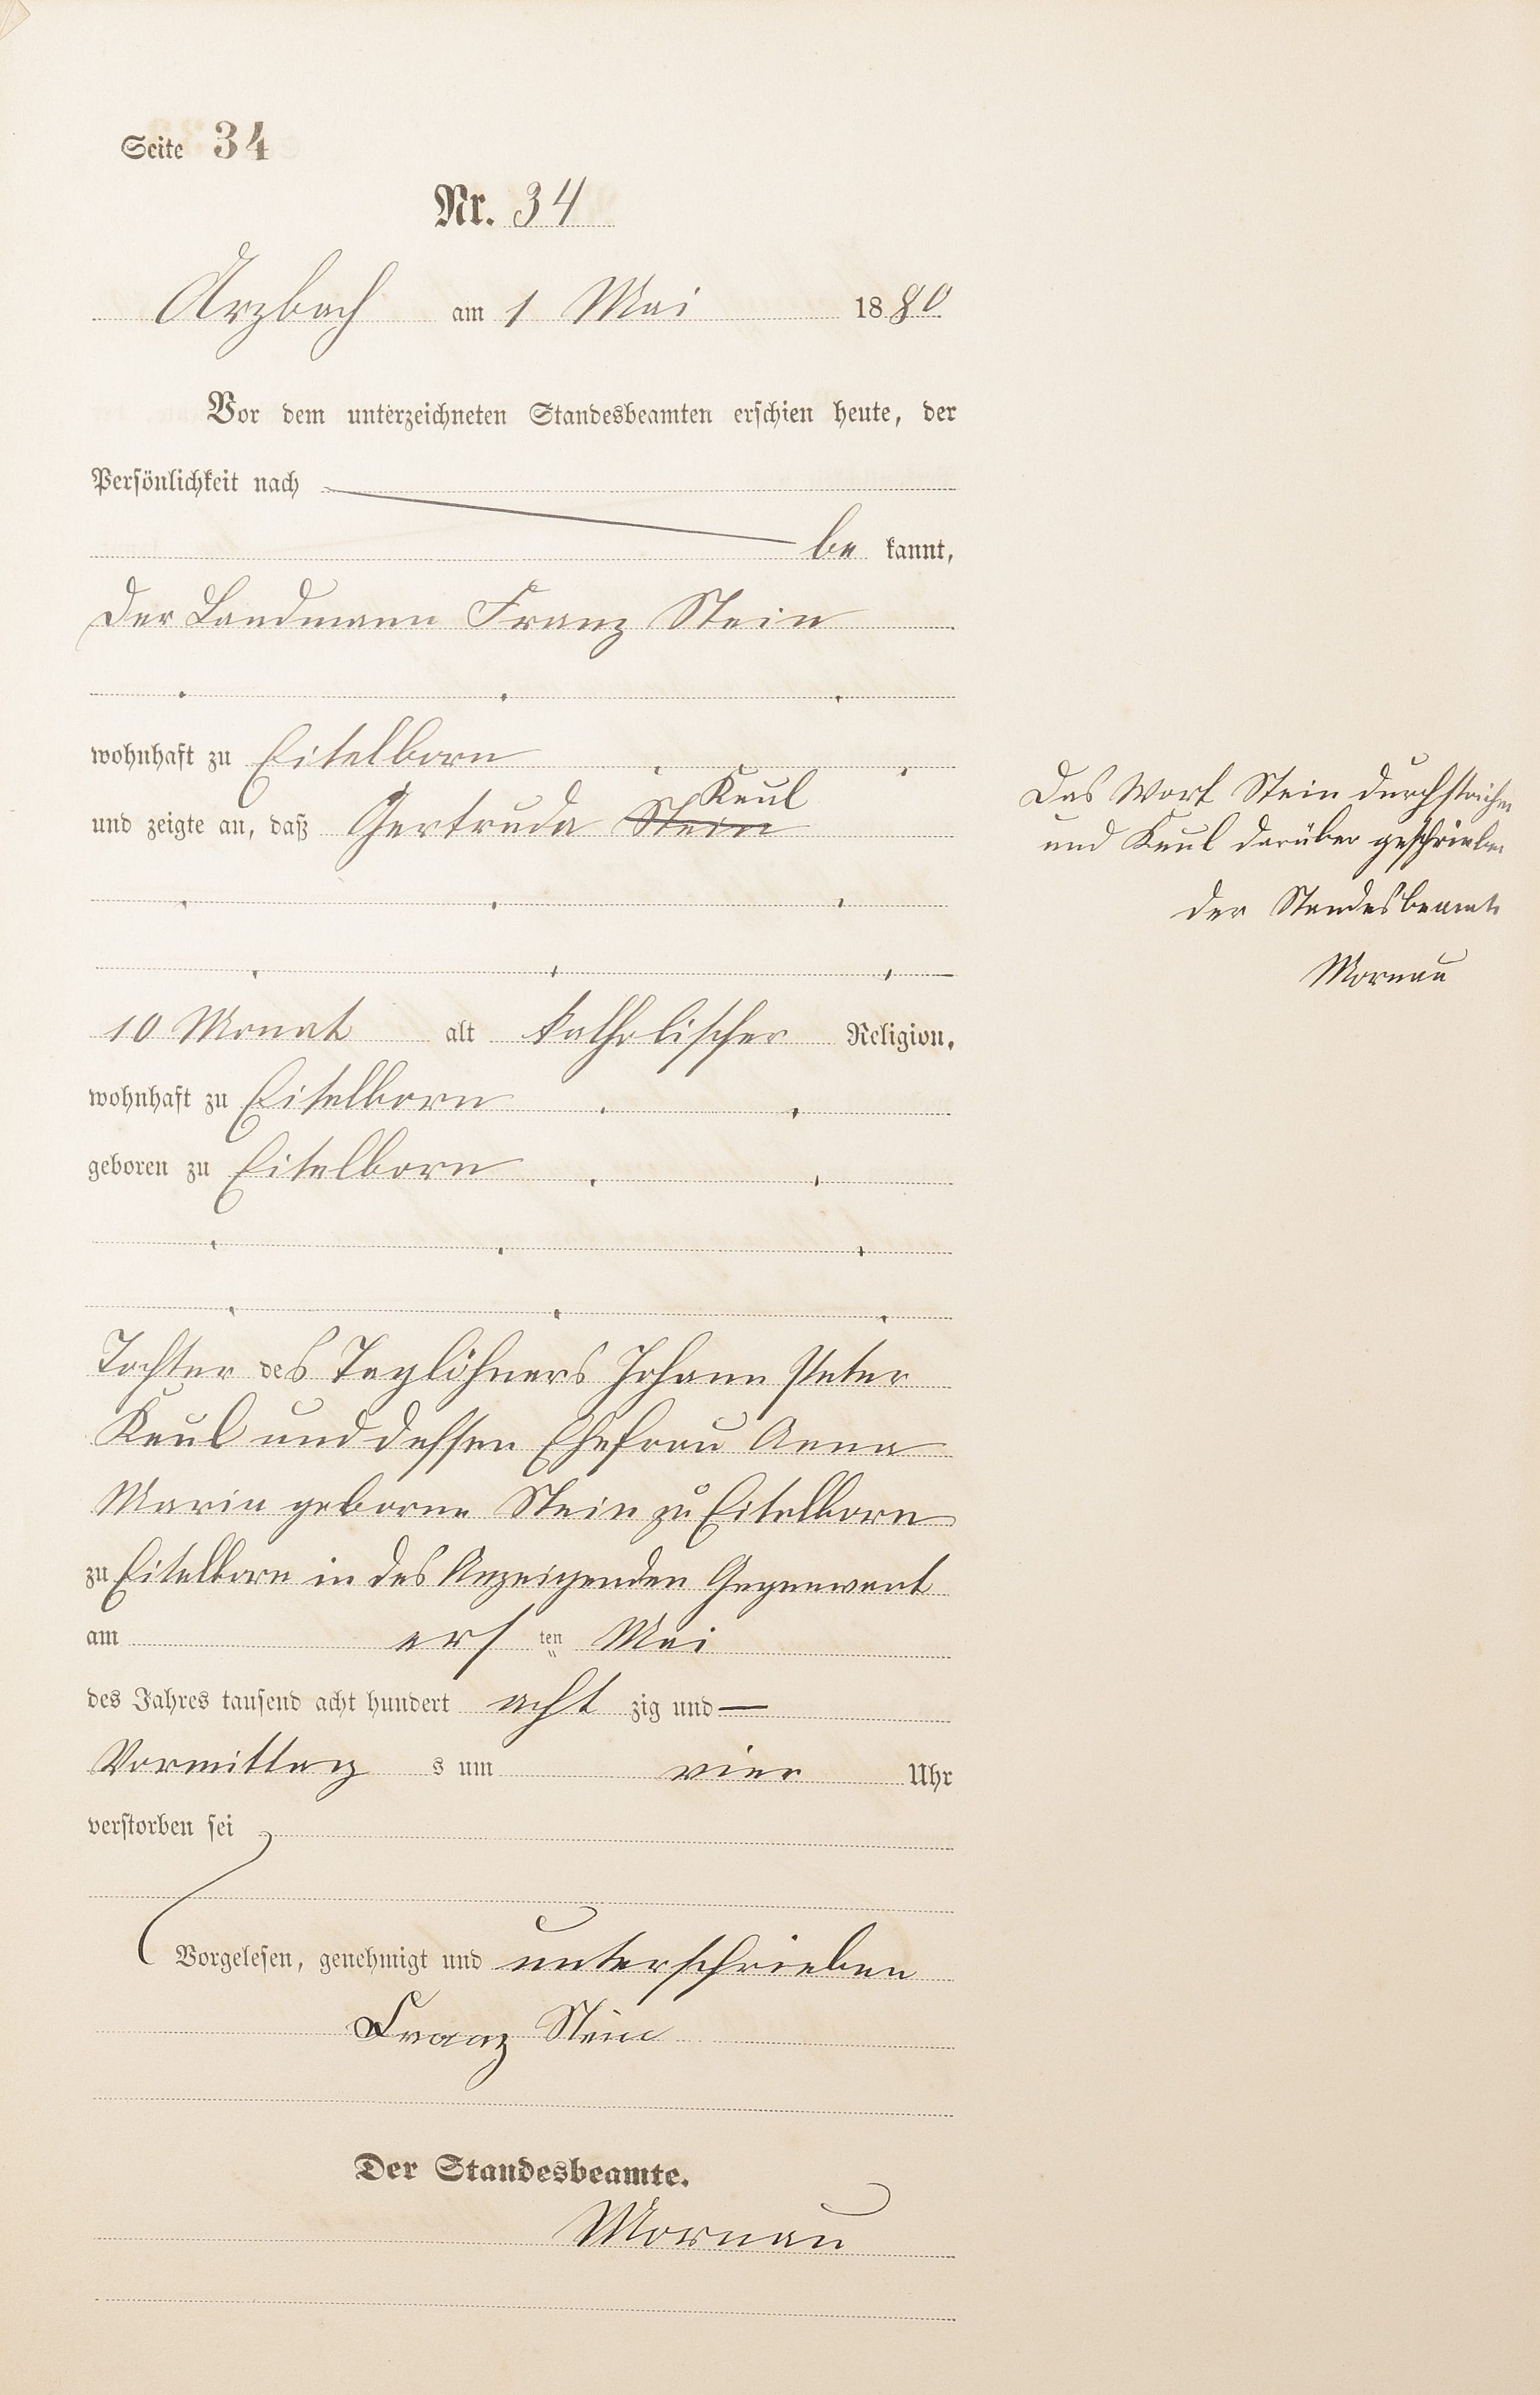 Seite 34
Nr. 34
Arzbach am 1 Mai 1880
Vor dem unterzeichneten Standesbeamten erschien heute, der
Persönlichkeit nach
be kannt,
der Landmann Franz Stein
wohnhaft zu Eitelborn
Keul
und zeigte an, daß Gertruda Stein
10 Monat alt katholischer Religion,
wohnhaft zu Eitelborn
geboren zu Eitelborn
Tochter des Taglöhners Johann Peter
Keul und dessen Ehefrau Anna
Maria geborne Stein zu Eitelborn
zu Eitelborn in des Anzeigenden Gegenwart
am ersten Mai
des Jahres tausend acht hundert acht zig und —
Vormittag s um vier Uhr
verstorben sei
Vorgelesen, genehmigt und unterschrieben
Franz Stein
Der Standesbeamte.
Mornau
Das Wort Stein durchstrichen
und Keul darüber geschrieben
der Standesbeamte
Mornau